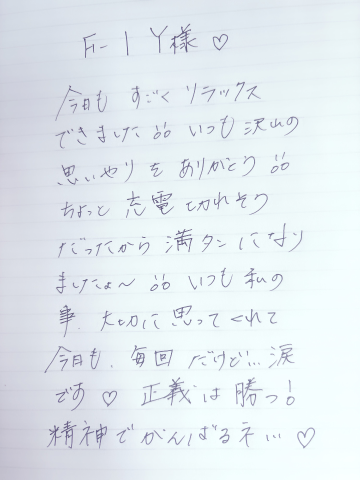 F-1 Y様 ♡
今日も すごく リラックス
できました!! いつも 沢山の
思いやり を ありがとう!!
ちょっと 充電 切れそう
だったから 満タン に なり
ましたょ〜!! いつも 私の
事、大切に思ってくれて
今日も、毎回 だけど… 涙
です ♡ 正義は 勝つ!
精神で がんばるネ… ♡